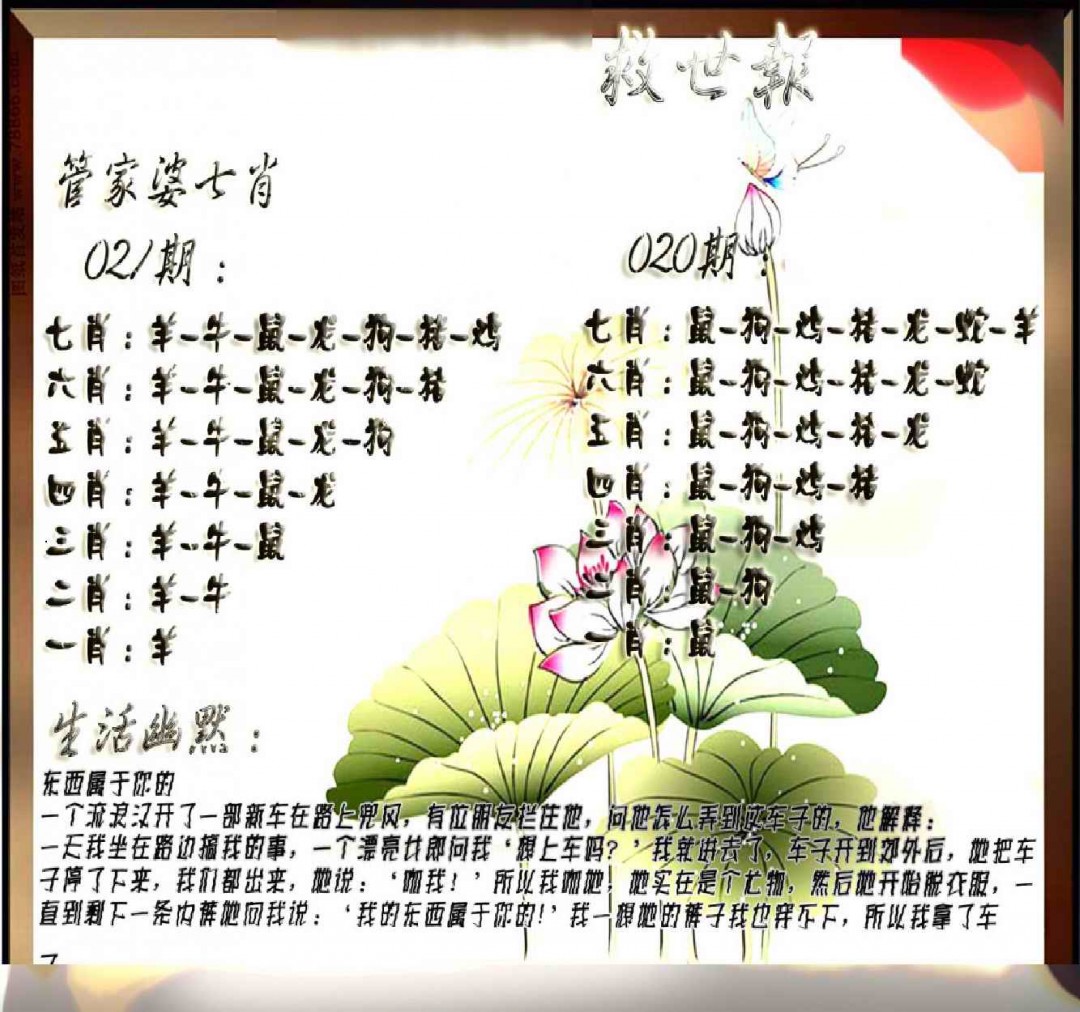 救世報
管家婆七肖
021期：
七肖：羊-牛-鼠-龙-狗-猪-鸡
六肖：羊-牛-鼠-龙-狗-猪
五肖：羊-牛-鼠-龙-狗
四肖：羊-牛-鼠-龙
三肖：羊-牛-鼠
二肖：羊-牛
一肖：羊
020期：
七肖：鼠-狗-鸡-猪-龙-蛇-羊
六肖：鼠-狗-鸡-猪-龙-蛇
五肖：鼠-狗-鸡-猪-龙
四肖：鼠-狗-鸡-猪
三肖：鼠-狗-鸡
二肖：鼠-狗
一肖：鼠
生活幽默：
东西属于你的
一个流浪汉开了一部新车在路上兜风，有位朋友栏住他，问他怎么弄到这车子的，他解释：
一天我坐在路边搞我的事，一个漂亮女郎问我‘想上车吗？’我就进去了，车子开到郊外后，她把车
子停了下来，我们都出来，她说：‘吻我！’所以我吻她，她实在是个尤物，然后她开始脱衣服，一
直到剩下一条内裤她向我说：‘我的东西属于你的！’我一想她的裤子我也穿不下，所以我拿了车